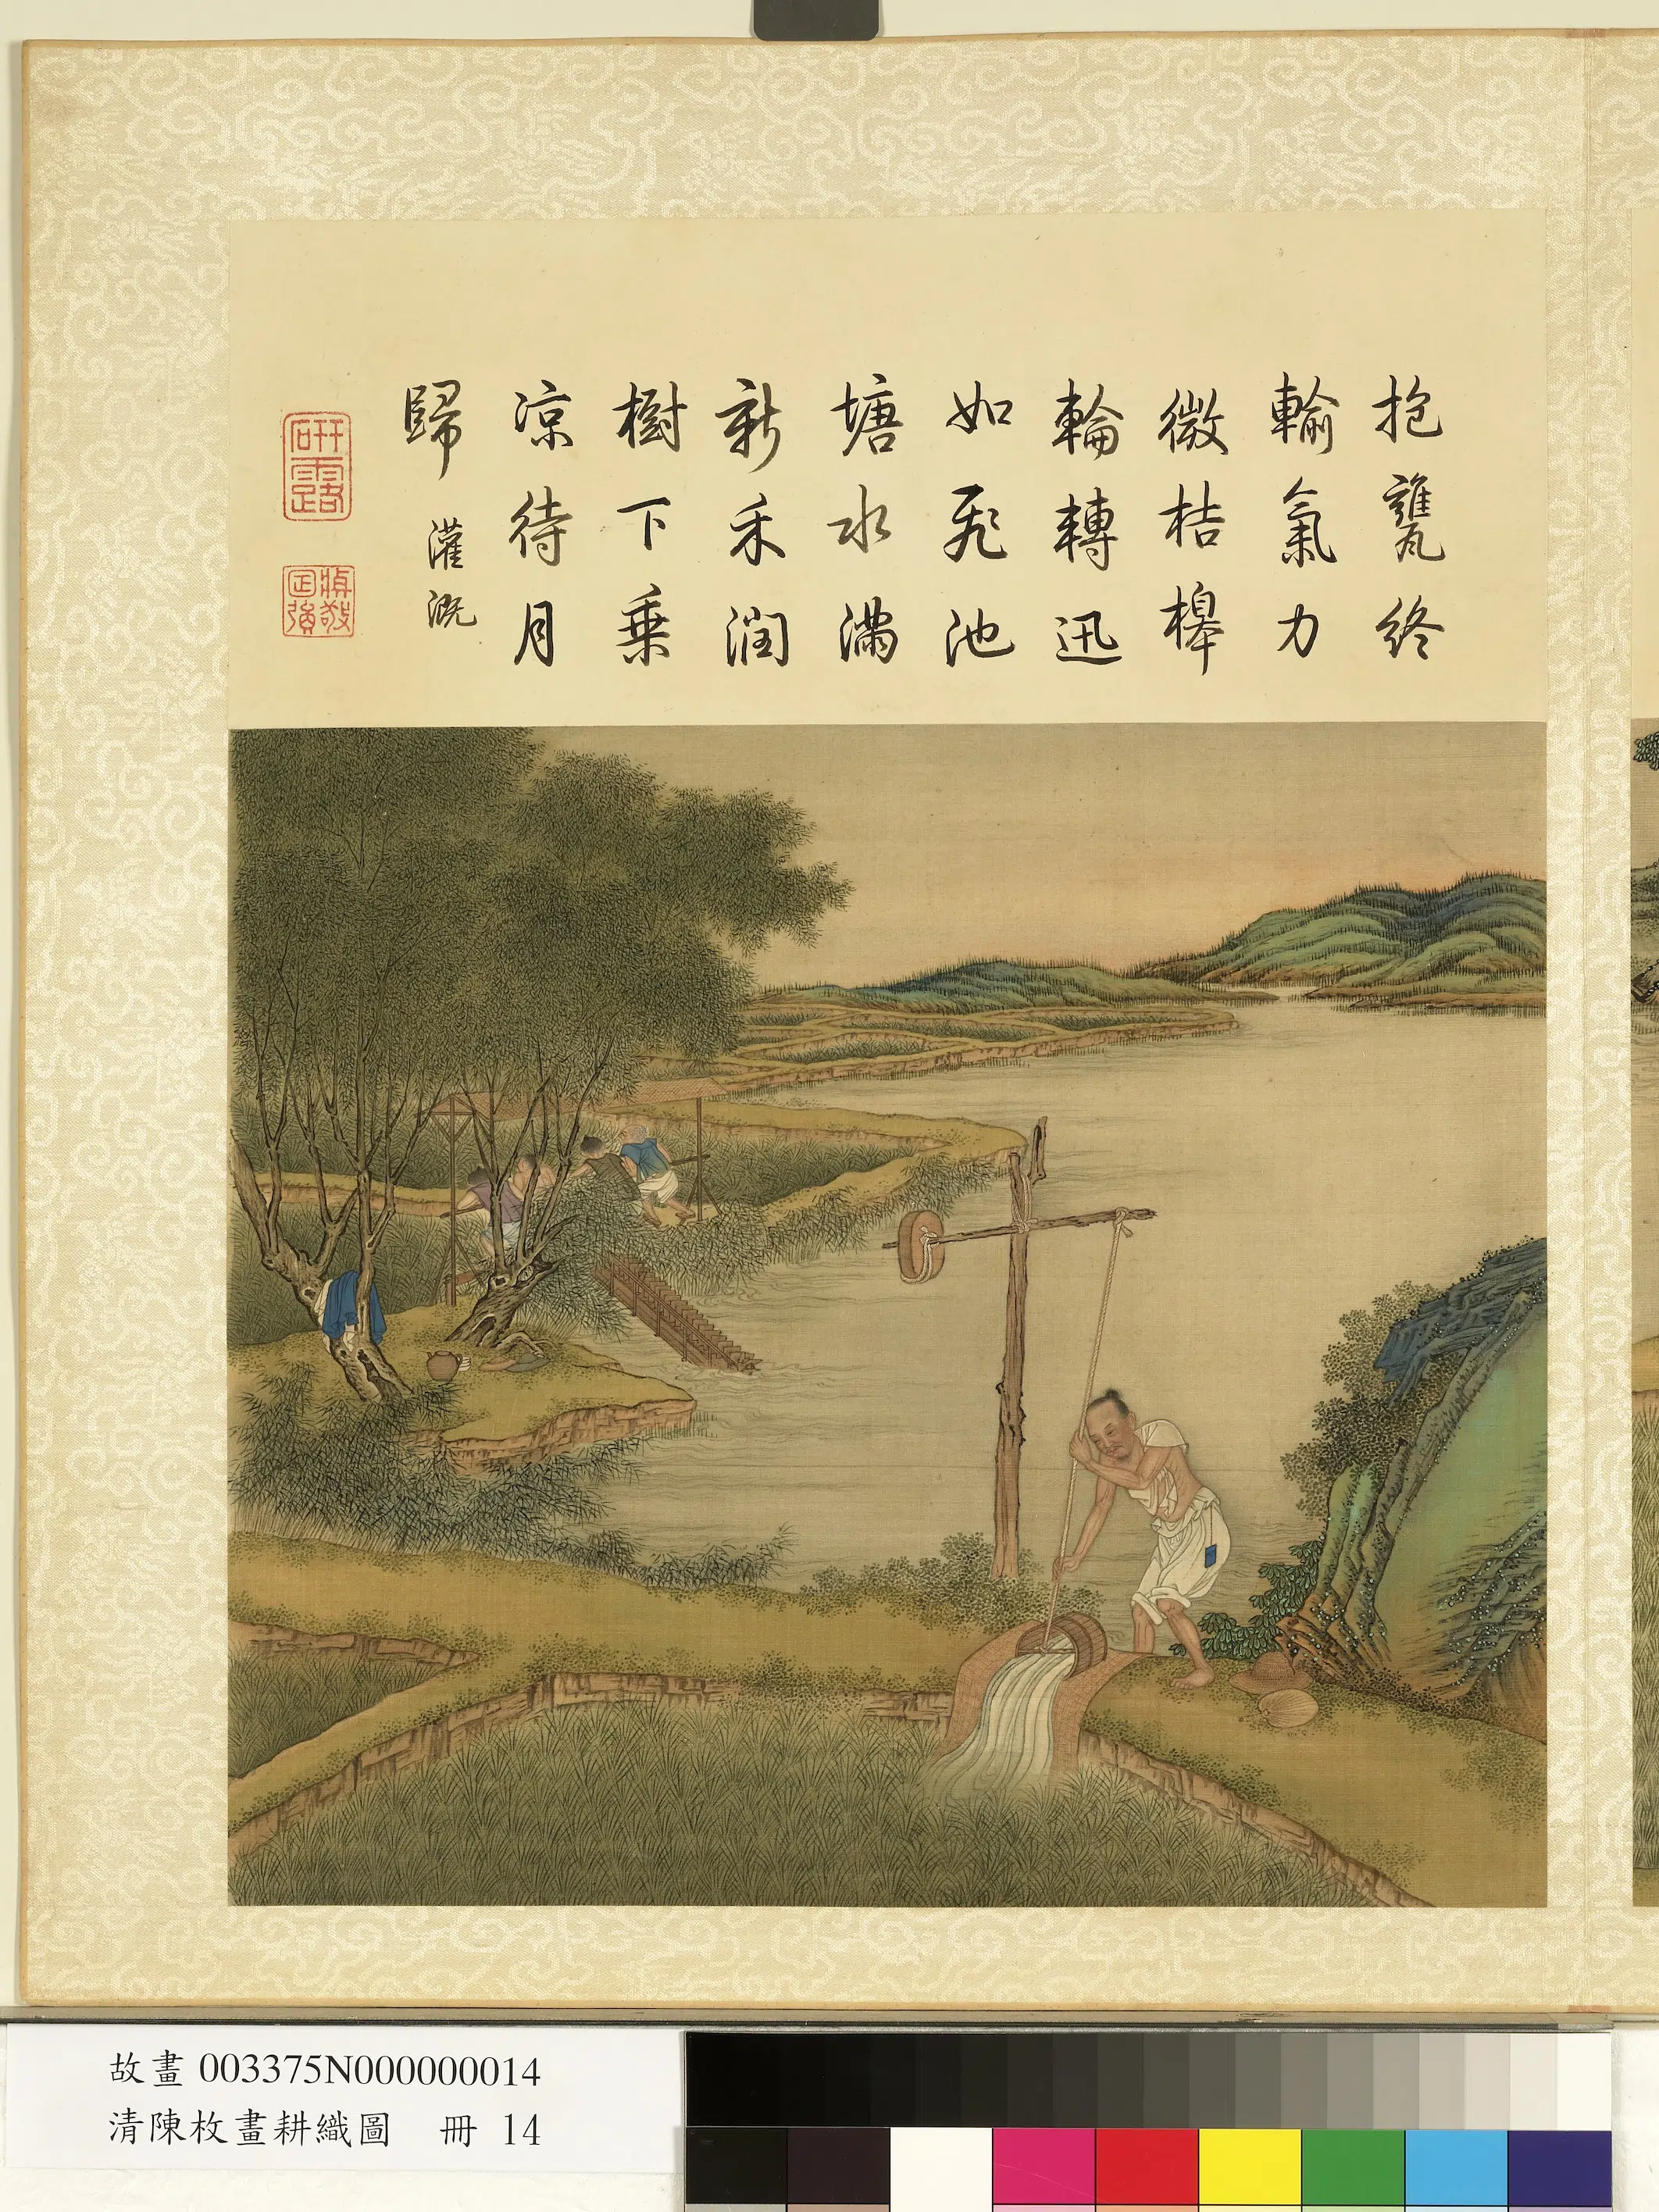 抱甕終
輸氣力
微桔槹
輪轉迅
如飛池
塘水滿
新禾潤
樹下乗
涼待月
歸
灌溉
研露
故畫 003375N000000014
清陳枚畫耕織圖 冊 14